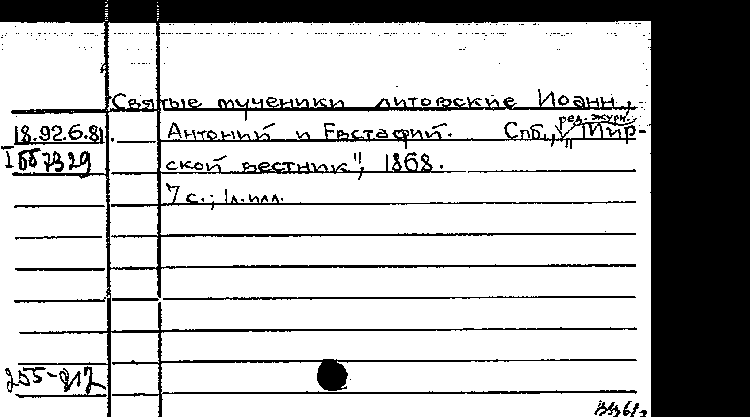 Святые мученики литовские Иоанн,
18.92.6.81. Антоний и Евстафий. Спб., ред. журн. "Мир-
ской вестник", 1868.
7 с.; 1 л. илл.
255-812